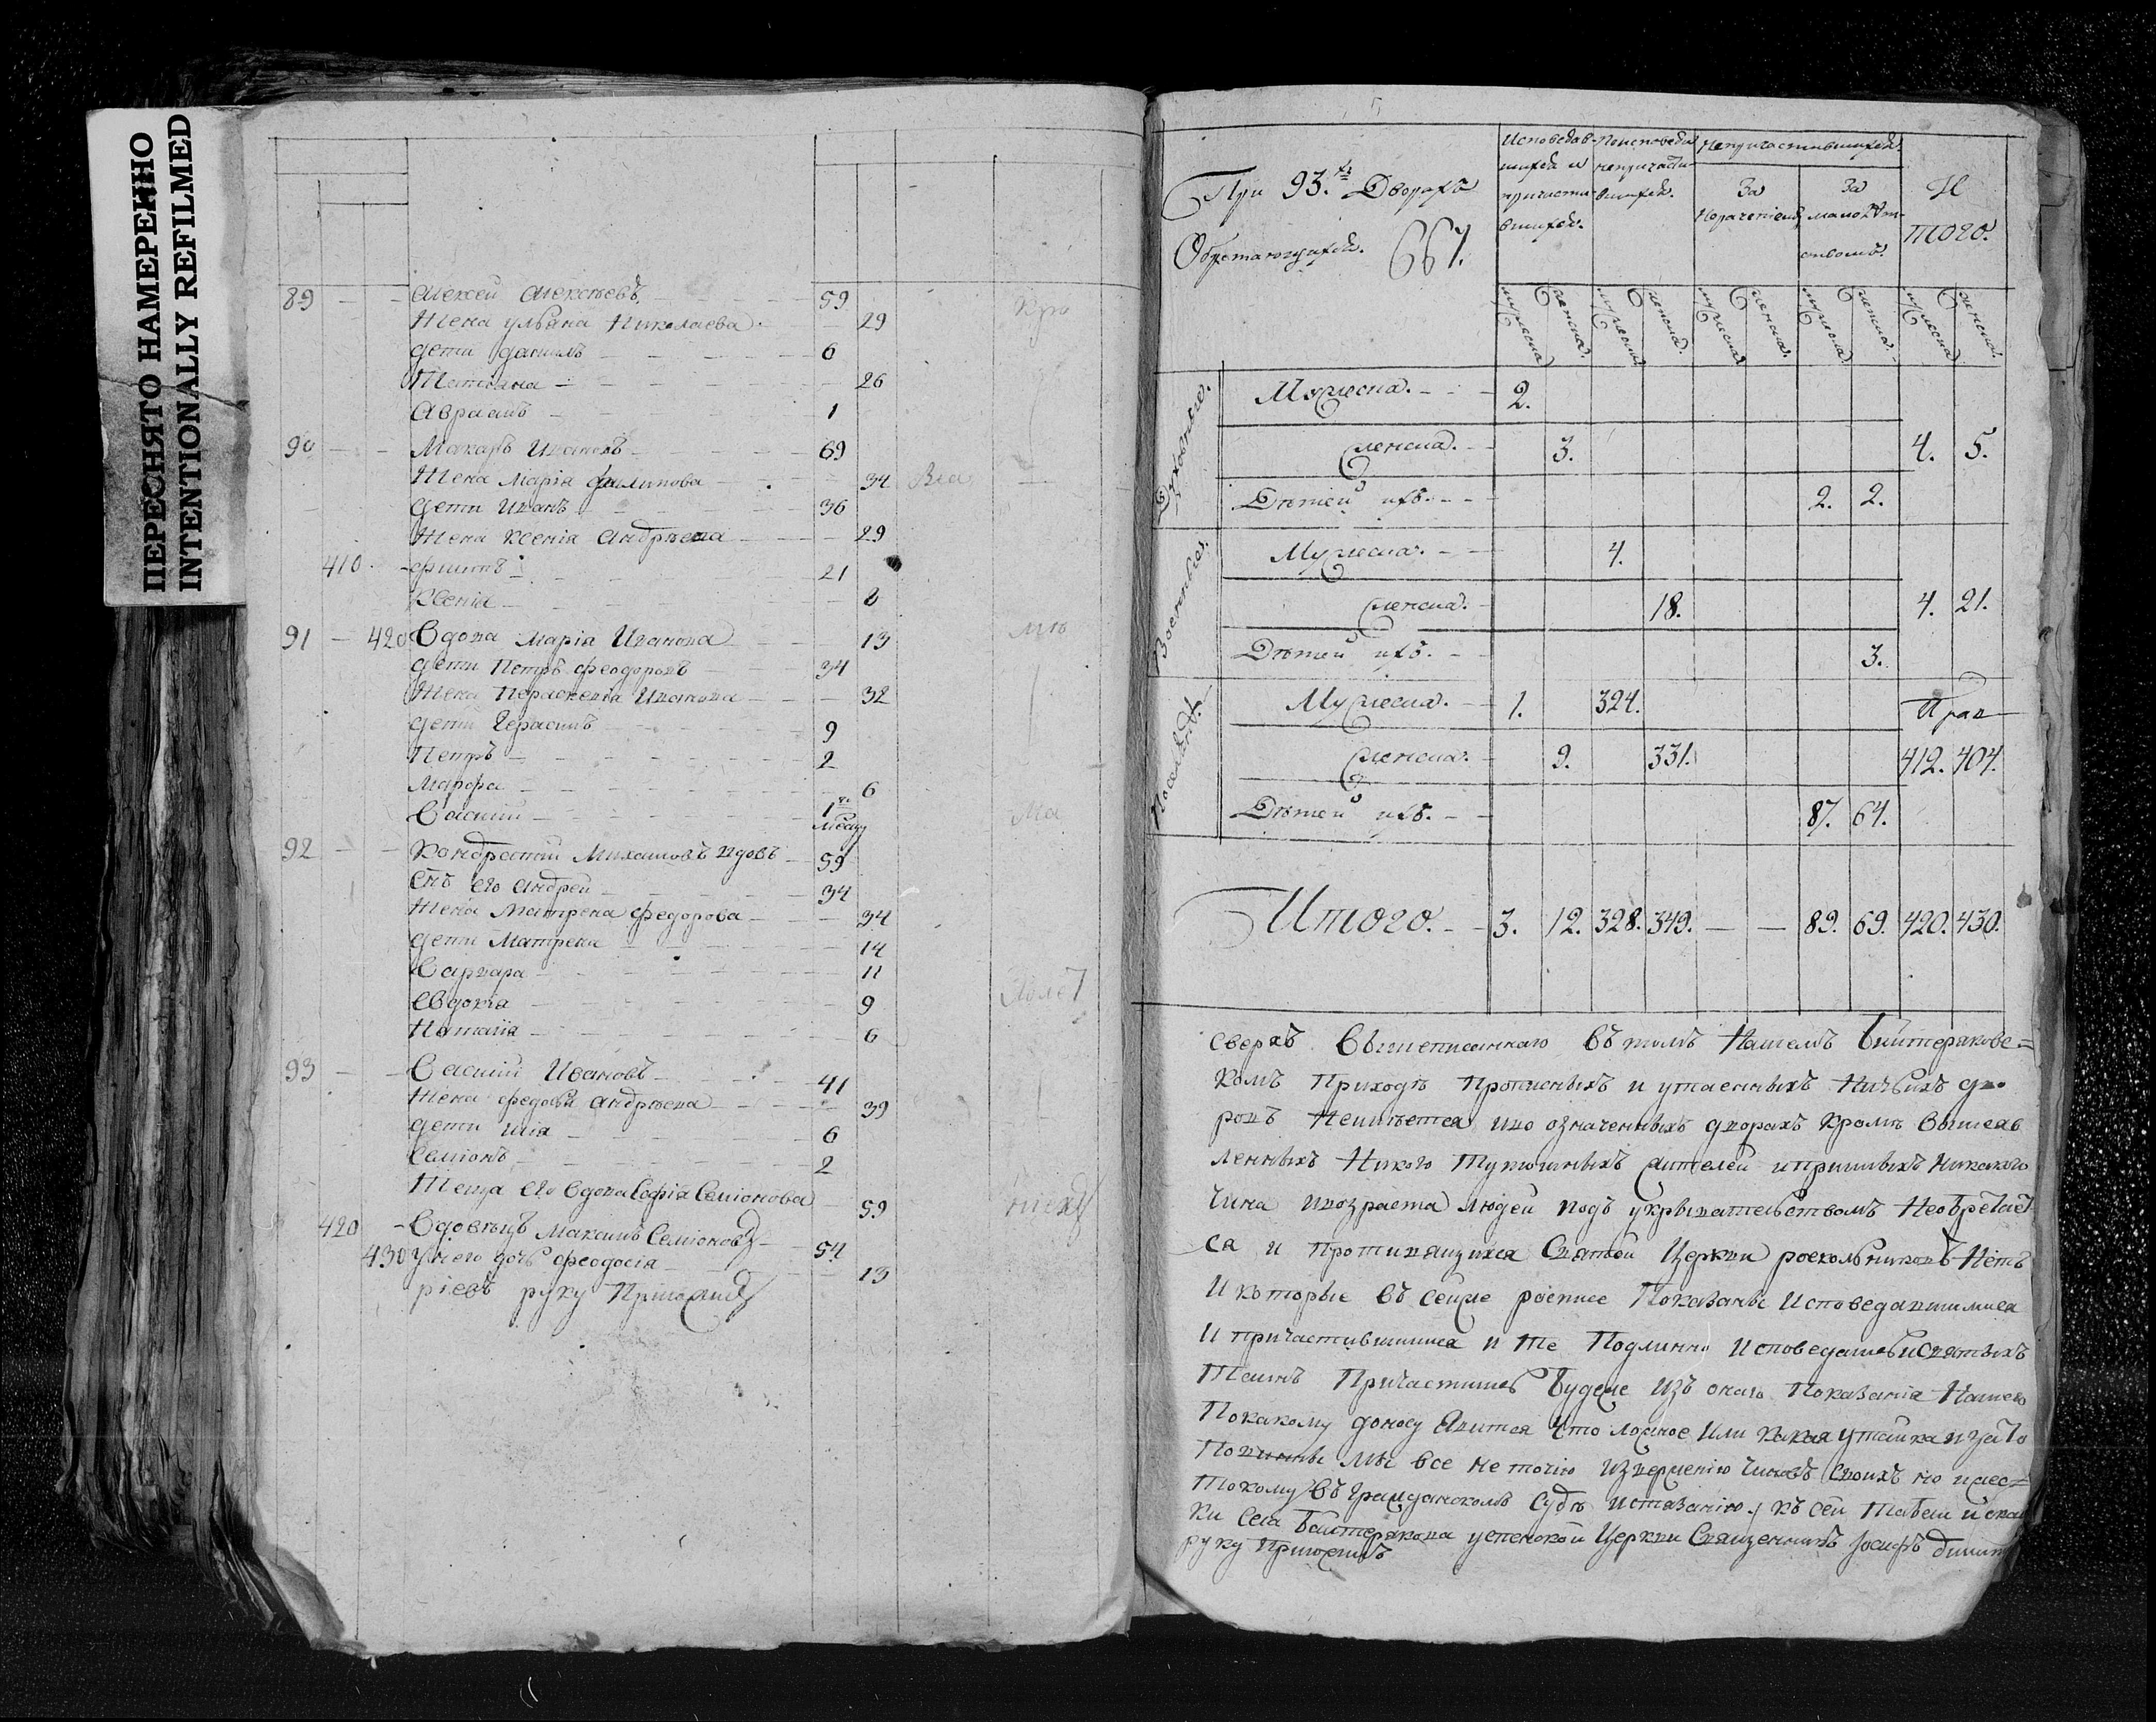 ПЕРЕСНЯТО НАМЕРЕННО
INTENTIONALLY REFILMED
89 Алексей Алексѣевъ 59
Жена ульяна Николаева 29
дети данилъ 6
Татиана 26
Авраамъ 1
90 Макаръ Ивановъ 69
Жена Марiа филипова 34
дети Иванъ 36
Жена Ксенiа Андрѣева 29
410 филипъ 21
Ксенiа 8
91 420 Вдова Марiа Иванова 13
дети Петръ феодоровъ 34
Жена Параскевiа Иванова 32
дети Герасимъ 9
Петръ 2
Марфа 6
Василiй 1
92 Кондратiй Михаиловъ вдовъ 59
Снъ его Андрей 34
Жена Матрена федорова 34
дети Матрена 14
Варвара 11
Евдокiа 9
Наталiа 6
93 Василiй Ивановъ 41
Жена федосiа Андрѣева 39
дети Илiа 6
Семiонъ 2
Теща его вдова Софiа Семiонова 59
420 Вдовецъ Максимъ Семiоновъ 54
430 у него дочь феодосiа 13
рiевъ руку Приложилъ
При 93.хъ Дворахъ
Обретающихся. 667.
Исповедав-
шихся и
причасти-
вшихся.
Поисповеди
непричасти-
вшихся.
Непричастившихся.
За
Нерачениемъ
За
малолѣт-
ствомъ.
И
того.
мужеска женска. мужеска женска. мужеска женска. мужеска женска. мужеска женска.
Духовные.
Мужеска. 2.
женска. 3. 4. 5.
Дѣтей ихъ. 2. 2.
Военные.
Мужеска. 4.
женска. 18. 4. 21.
Дѣтей ихъ. 3.
Мужеска. 1. 324.
женска. 9. 331. 412. 404.
Дѣтей ихъ. 87. 64.
Итого. 3. 12. 328. 349. — — 89. 69. 420. 430.
сверхъ Вышеписаннаго Въ томъ Нашемъ Баитеракове=
комъ Приходѣ Прописныхъ и утаенныхъ Ничьихъ дво
ровъ Неимѣется ино означенныхъ дворахъ Кромѣ Вышеяв
ленныхъ Никого Тутошныхъ жителей ипришлыхъ Никакого
Чина ивозраста людей подъ укрывательствомъ Необретает
ся и Противящихся Святой Церкви роскольниковъ Нетъ
И которые въ сейже росписе Показаны Исповедавшимися
И причастившимися и те Подлинно Исповедались иСвятыхъ
Таинъ Причастились Будеже Изъ онаго Показанiа Нашего
Покакому доносу Явится Что ложное Или Какая утайка изато
Повинны мы все не точiю извержению Чиновъ своихъ но ижес=
токому Въ гражданскомъ Судѣ истязанiю. Къ сей Табели
Ки Села Баитеракова успенской Церкви Священникъ Iосифъ
руку Приложилъ